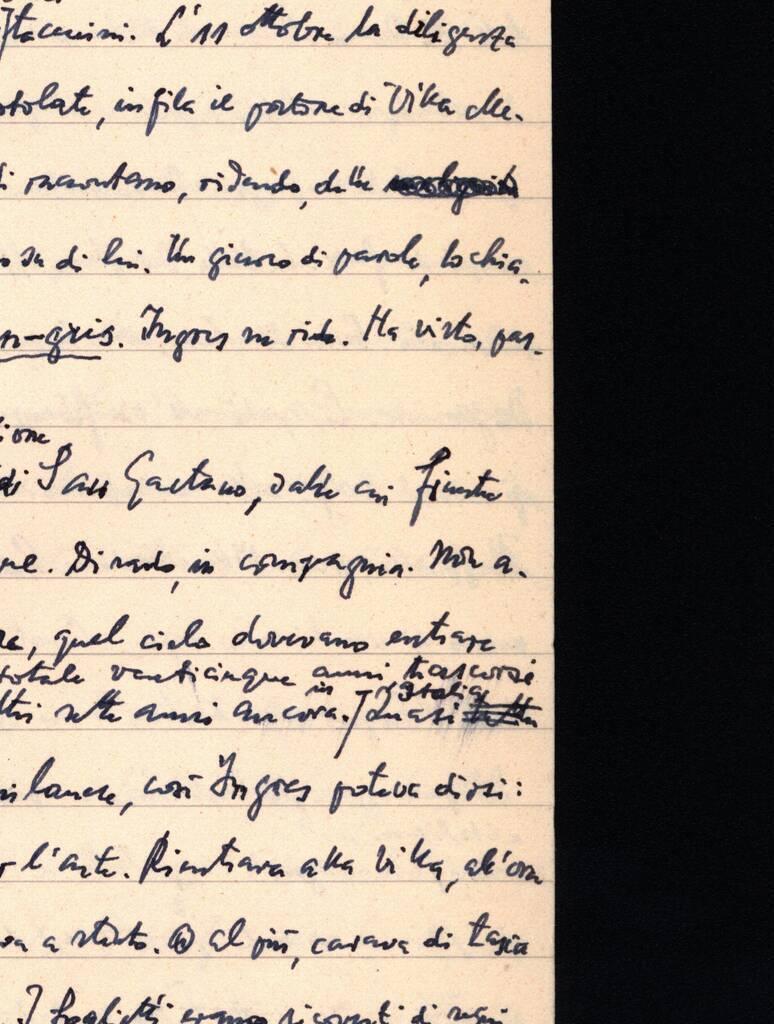 L'11 ottobre la diligenza
infila il portone di Villa Me-
raccontano, ridendo, della
di lui. Un gioco di parole, lo chia-
n-gris. Ingres ne ride. Ha visto, pas-
ione
di San Gaetano, dalle cui finestre
Di rado, in compagnia. Non a-
quel cielo dovevano entrare
totale venticinque anni trascorsi
in Italia
sette anni ancora. Quasi
milanese, così Ingres poteva dirsi:
l'arte. Rientrava alla Villa, all'ora
a stento. O al più, cavava di tasca
I foglietti erano ricoperti di segni